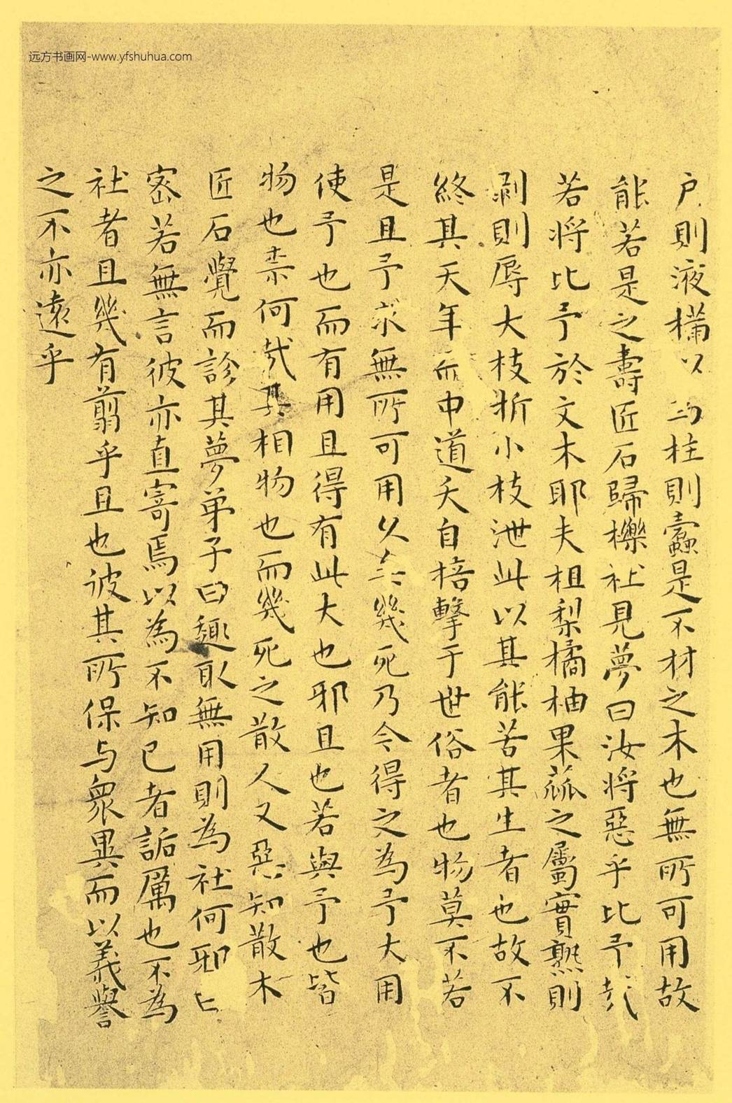 远方书画网-www.yfshuhua.com
户則液樠以為柱則蠹是不材之木也無所可用故
能若是之壽匠石歸櫟社見夢曰汝將惡乎比予
若將比予於文木耶夫柤梨橘柚果蓏之屬實熟則
剥則辱大枝折小枝泄此以其能苦其生者也故不
終其天年而中道夭自掊擊于世俗者也物莫不若
是且予求無所可用久矣幾死乃今得之為予大用
使予也而有用且得有此大也邪且也若與予也皆
物也柰何哉其相物也而幾死之散人又惡知散木
匠石覺而診其夢弟子曰趣取無用則為社何邪曰
宻若無言彼亦直寄焉以為不知已者詬厲也不為
社者且幾有翦乎且也彼其所保与衆異而以義譽
之不亦遠乎